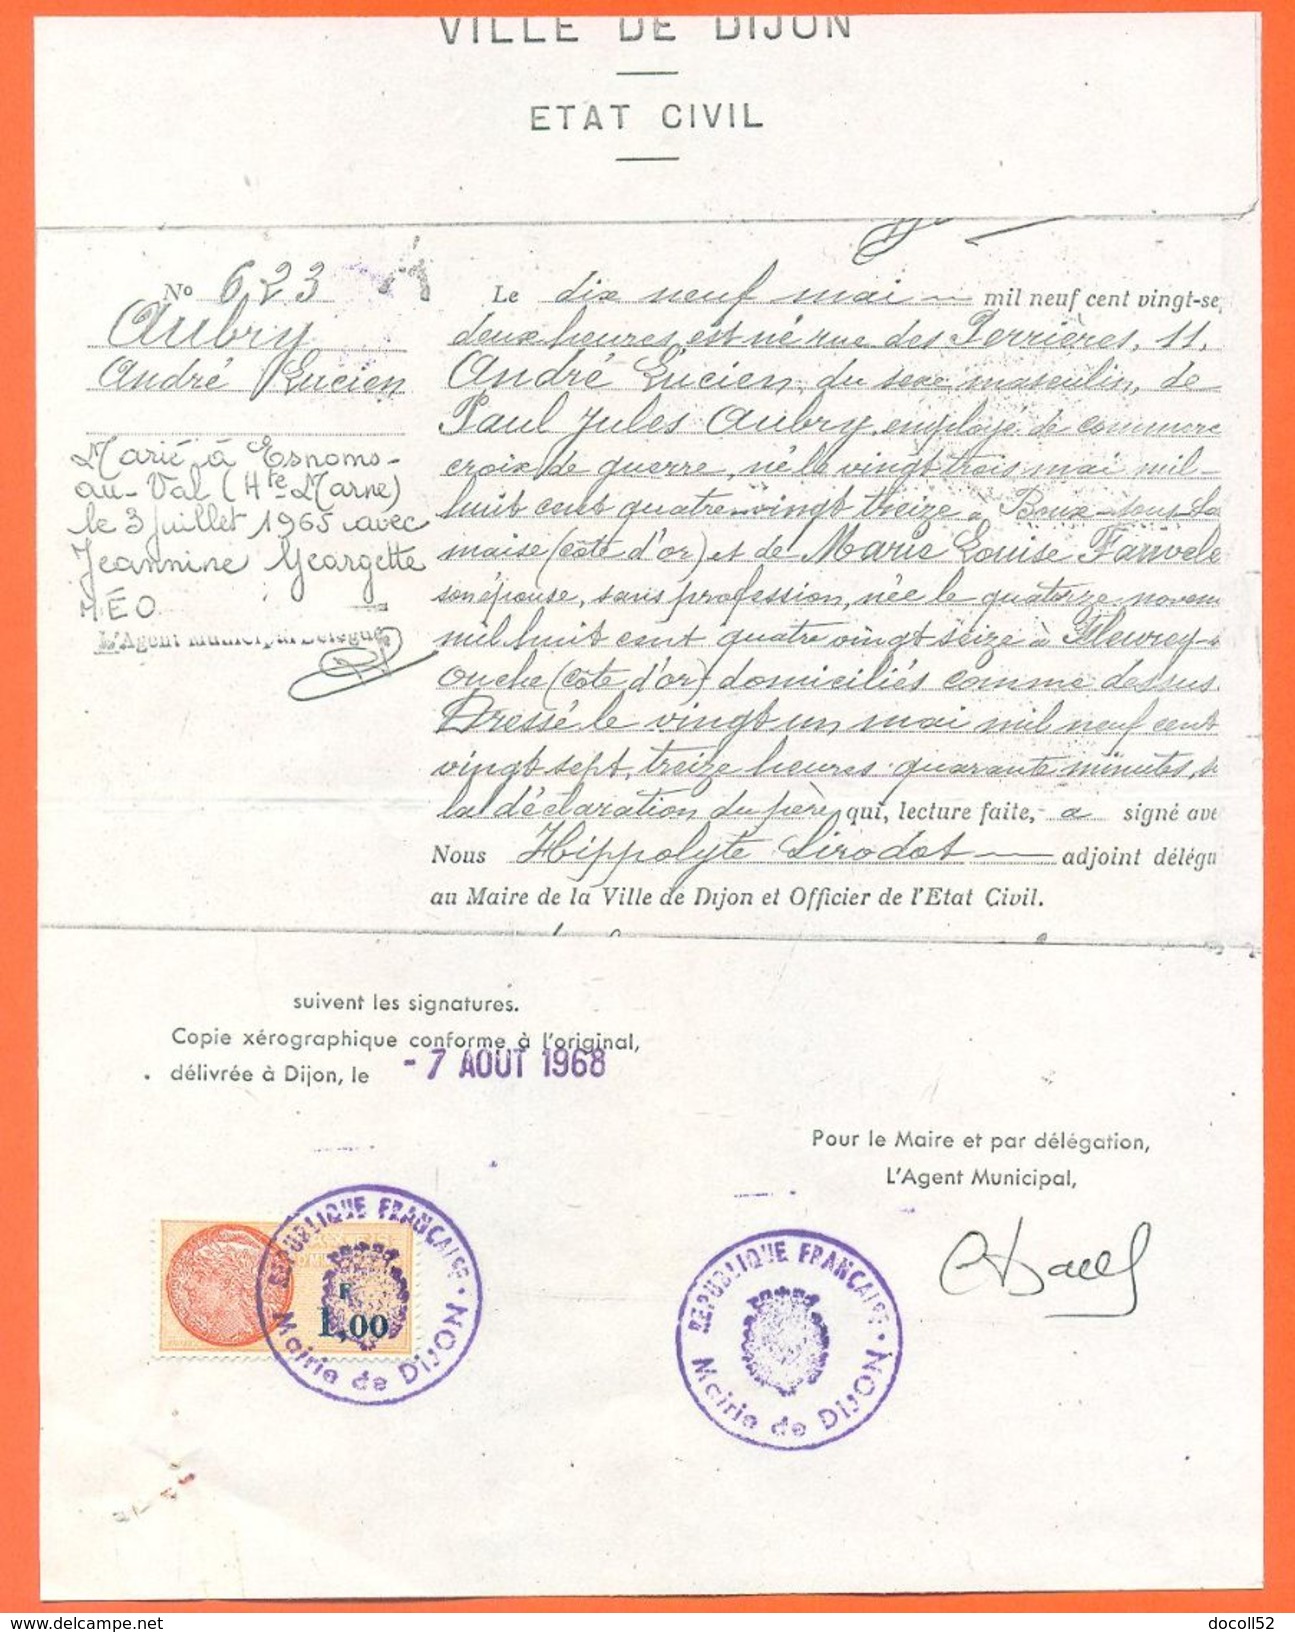 VILLE DE DIJON
ETAT CIVIL
No 623
Aubry
André Lucien
Marié à Esnoms-
au-Val (Hte Marne)
le 3 juillet 1965 avec
Jeannine Georgette
MÉO
L'Agent Municipal Délégué
Le dix neuf mai mil neuf cent vingt-se
deux heures, est né rue des Perrières, 11,
André Lucien, du sexe masculin, de
Paul Jules Aubry, employé de commerce
croix de guerre, né le vingt trois mai mil-
huit cent quatre-vingt treize à Boux-sous-Sa
maise (Côte d'or) et de Marie Louise
son épouse, sans profession, née le quatorze novem
mil huit cent quatre vingt seize à Fleurey-s
Ouche (Côte d'or) domiciliés comme dessus.
Dressé le vingt un mai mil neuf cent
vingt sept, treize heures quarante minutes, s
la déclaration du père, qui, lecture faite, a signé ave
Nous Hippolyte Sirodot adjoint délégu
au Maire de la Ville de Dijon et Officier de l'Etat Civil.
suivent les signatures.
Copie xérographique conforme à l'original,
délivrée à Dijon, le - 7 AOUT 1968
Pour le Maire et par délégation,
L'Agent Municipal,
REPUBLIQUE FRANÇAISE
Mairie de DIJON
1,00
REPUBLIQUE FRANÇAISE
Mairie de DIJON
© www.delcampe.net
docoll52